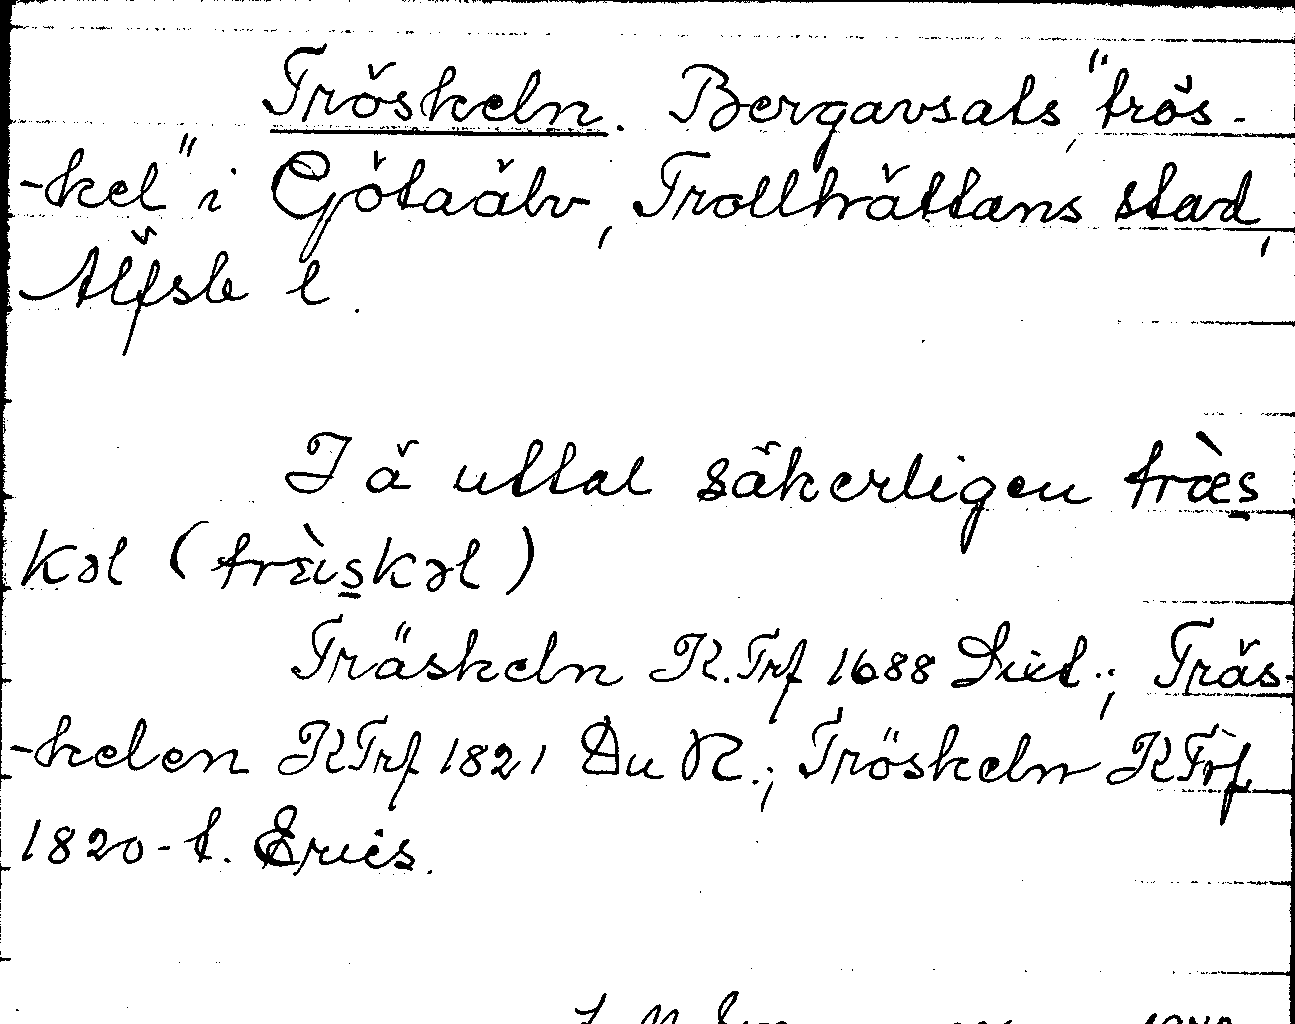 Tröskeln. Bergavsats, "trös-
-kel" i Götaälv, Trollhättans stad,
Älfsb l.
I ä uttal säkerligen træ̀s
kəl (trɛ̀iskəl)
Träskeln K.Trf 1688 Diet.; Träs-
-kelen KTrf 1821 Du R.; Tröskeln KTrf
1820-t. Erics.